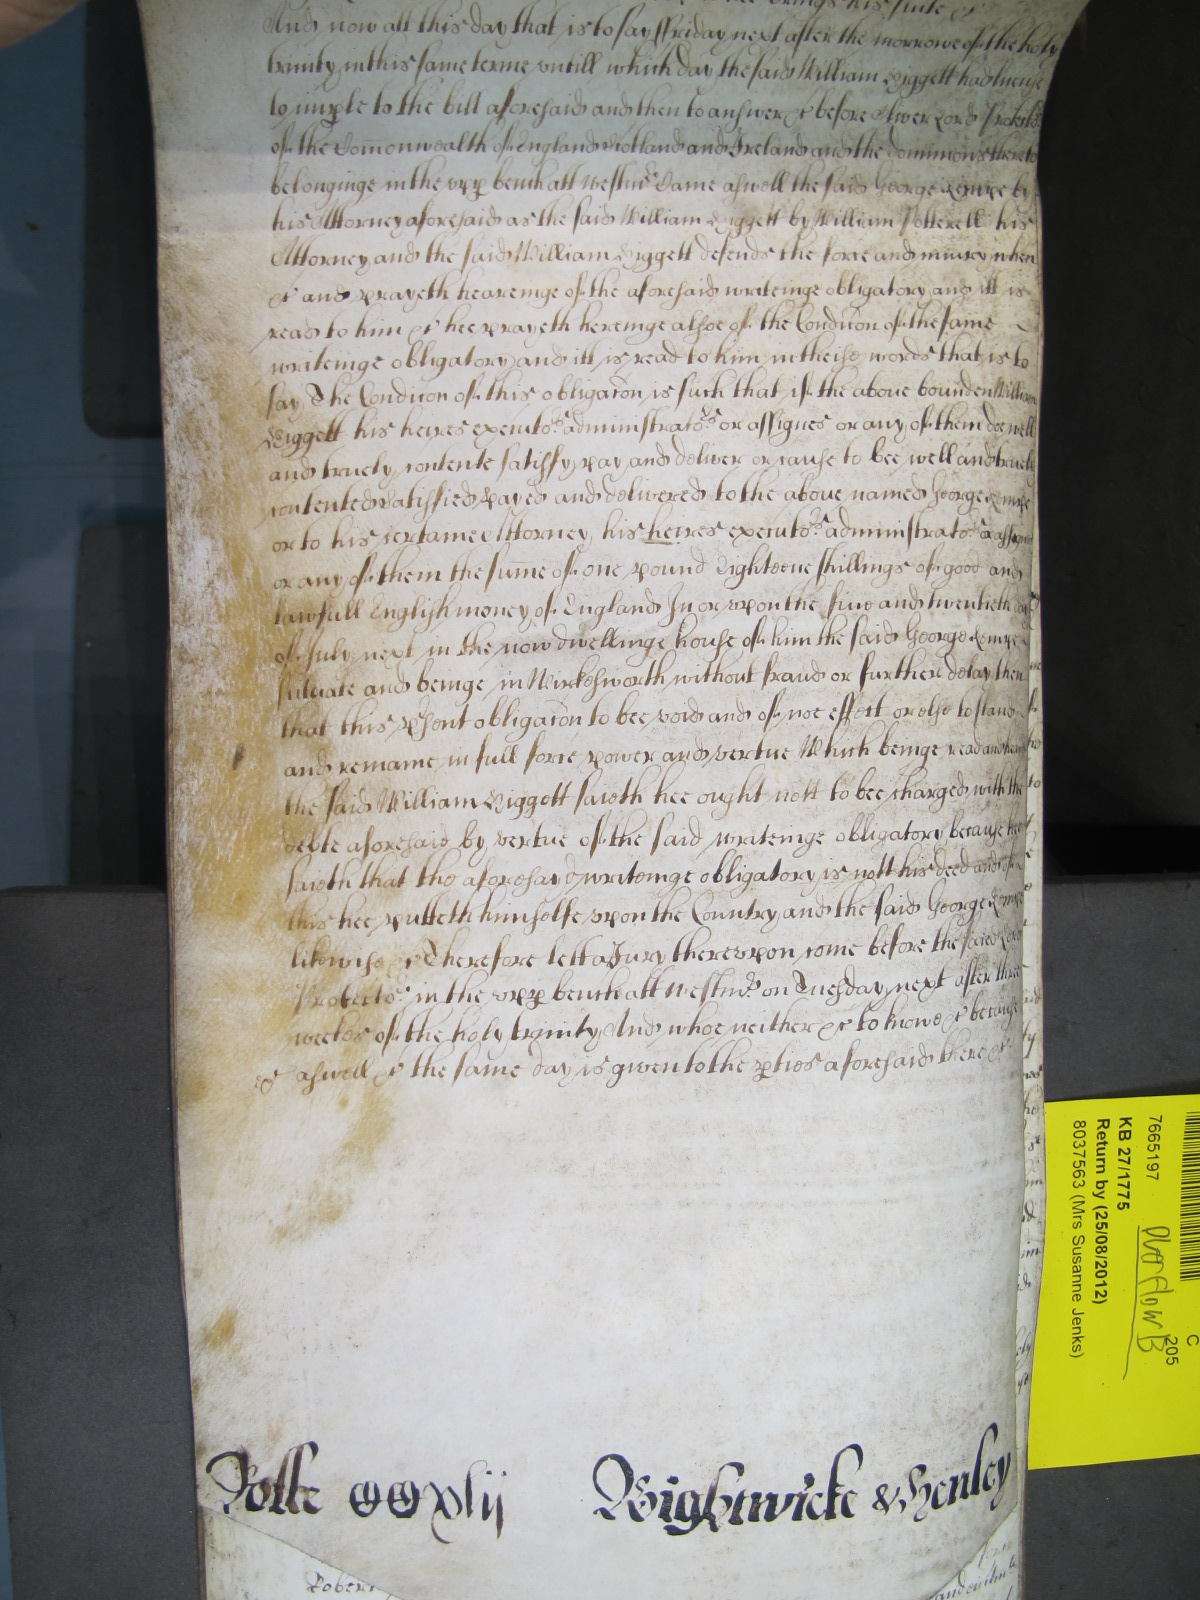 brings his suite &c
And now att this day that is to say ffriday next after the morrowe of the holy
trinity in this same terme untill which day the said William Liggett had lycense
to imple to the bill aforesaid and then to answer &c before Oliver Lord Protector
of the Comonwealth of England Scotland and Ireland and the dominions thereto
belonginge in the upp bench att Westmr Came aswell the said George by
his Attorney aforesaid as the said William Liggett by William Potterell his
Attorney and the said William Liggett defends the force and iniury when
&c and prayeth hearinge of the aforesaid writeinge obligatory and itt is
read to him &c hee prayeth hereinge alsoe of the Condicon of the same
writeinge obligatory and itt is read to him in theise words that is to
say The Condicon of this obligacon is such that if the above bounden William
Liggett his heires executors administrators or assignes or any of them doe well
and truely contente satisfy pay and deliver or cause to bee well and truely
contented satisfied payed and delivered to the above named George
or to his certaine Attorney his heires executors administrators or assignes
or any of them the sume of one pound Eighteene shillings of good and
lawfull English money of England In or upon the five and twentieth day
of July next in the now dwellinge house of him the said George
situate and beinge in Wirkesworth without fraud or further delay then
that this psent obligacon to bee void and of noe effect or else to stand
and remaine in full force power and vertue Which beinge read and heard
the said William Liggett saieth hee ought nott to bee charged with the
debte aforesaid by vertue of the said writeinge obligatory because hee
saieth that the aforesayd writeinge obligatory is nott his deed and of
this hee putteth himselfe upon the Country and the said George
likewise &c Therefore lett a Jury thereupon come before the said Lord
Protector in the upp bench att Westmr on Tuesday next after three
weekes of the holy trinity And whoe neither &c to knowe &c because
aswell &c the same day is given to the pties aforesaid there &c
Rolle CCxlij Wightwicke & Henley
Robert
7665197
KB 27/1775
Return by (25/08/2012)
8037563 (Mrs Susanne Jenks)
C
205
overflow B